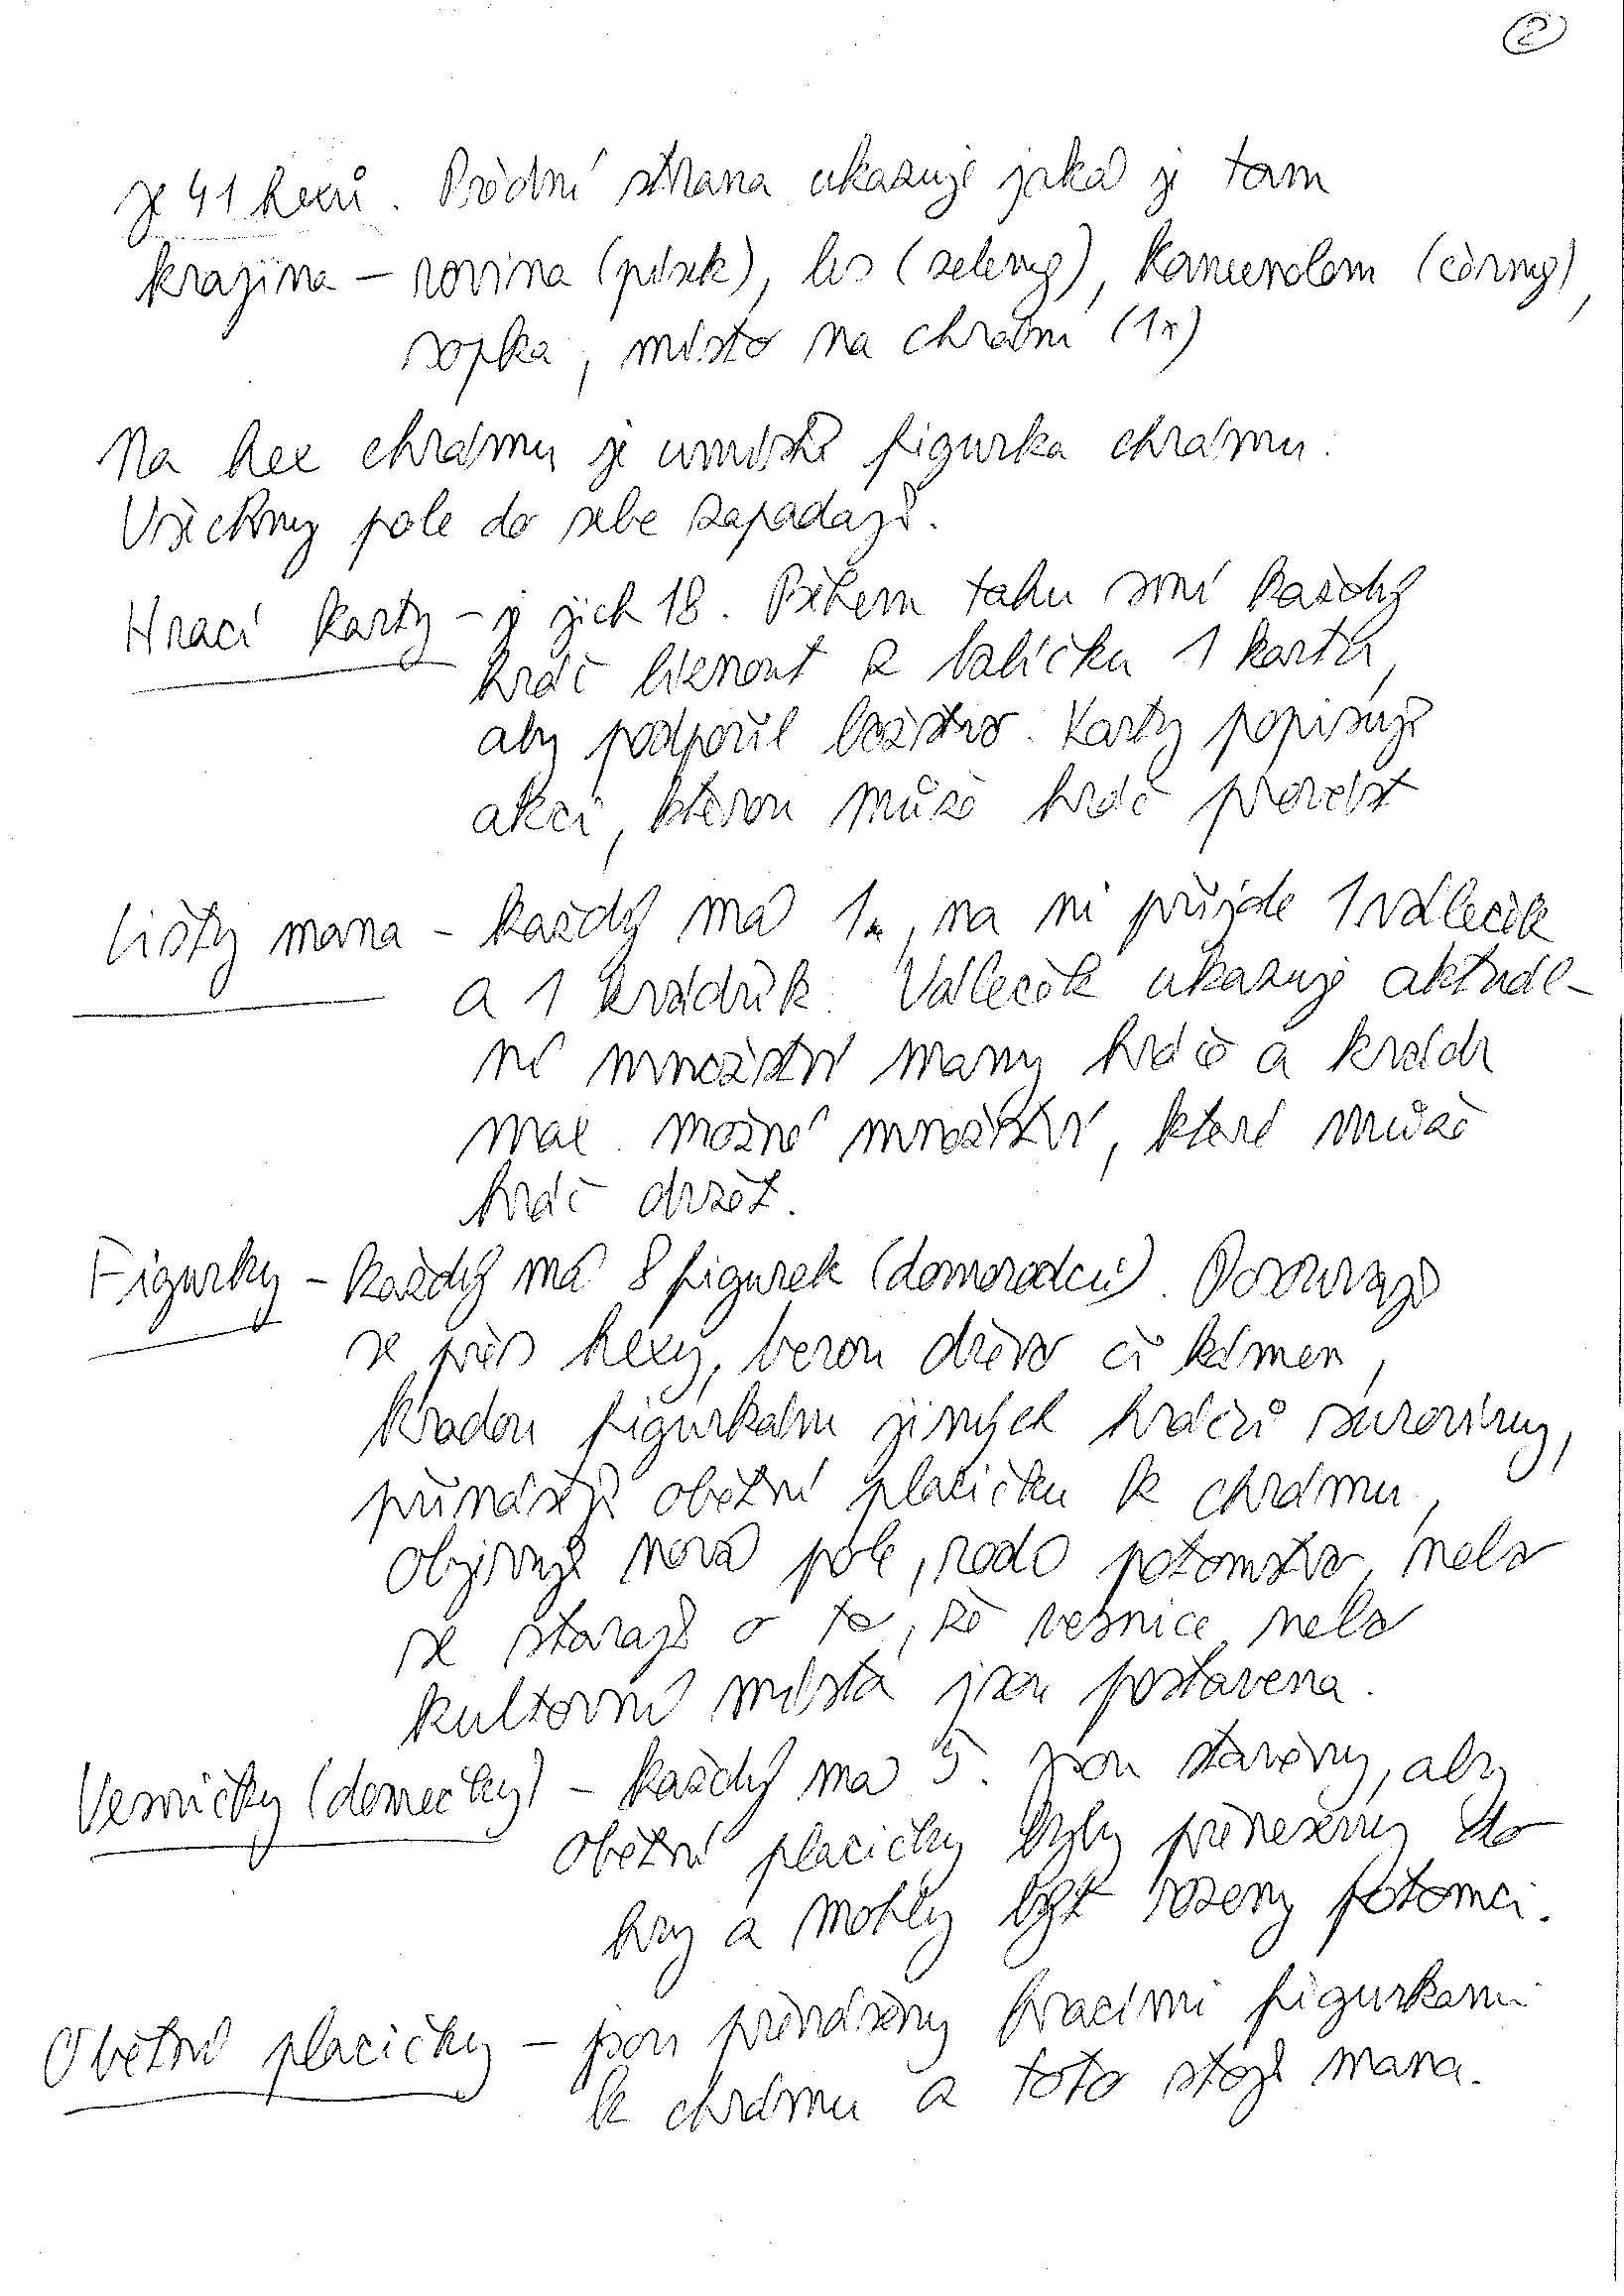 2
je 41 hexů. Přední strana ukazuje jaká je tam
krajina – rovina (písek), les (zelený), kamenolom (černý),
sopka, místo na chrám (1x)
Na hex chrámu je umístě figurka chrámu.
Všechny pole do sebe zapadají.
Hrací karty – je jich 18. Během tahu smí každý
hráč líznout z balíčku 1 kartu,
aby podpořil božstvo. Karty popisují
akci, kterou může hráč provést
Lišty mana – každý má 1x, na ni přijde 1 váleček
a 1 kvádřík. Váleček ukazuje aktuál-
ní množství many hráče a kvádr
max. možné množství, které může
hráč držet.
Figurky – každý má 8 figurek (domorodců). Posouvají
se přes hexy, berou dřevo či kámen,
kradou figurkám jiných hráčů suroviny,
přináší obětní placičku k chrámu,
objevují nová pole, rodí potomstvo, nebo
se starají o to, že vesnice nebo
kultovní místa jsou postavena.
Vesničky (domečky) – každý má 5. Jsou stavěny, aby
obětní placičky byly přineseny do
hry a mohly být rozeny potomci.
Obětní placičky – jsou přenášeny hracími figurkami
k chrámu a toto stojí mana.